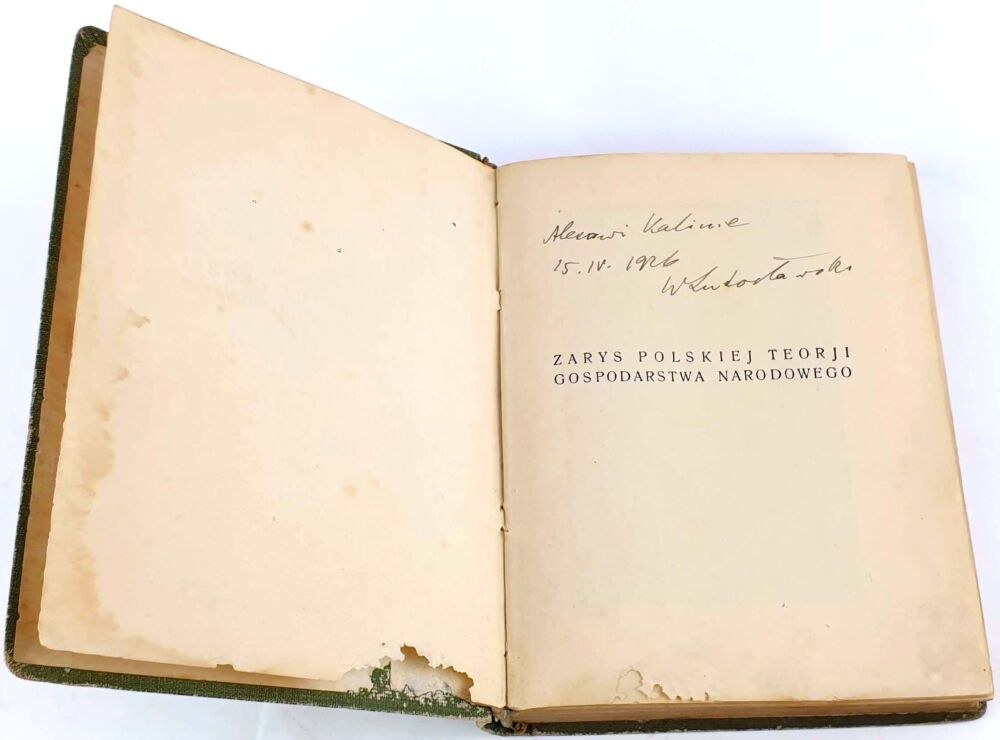 Kalinie
15. IV. 1926
WLutosławski
ZARYS POLSKIEJ TEORJI
GOSPODARSTWA NARODOWEGO